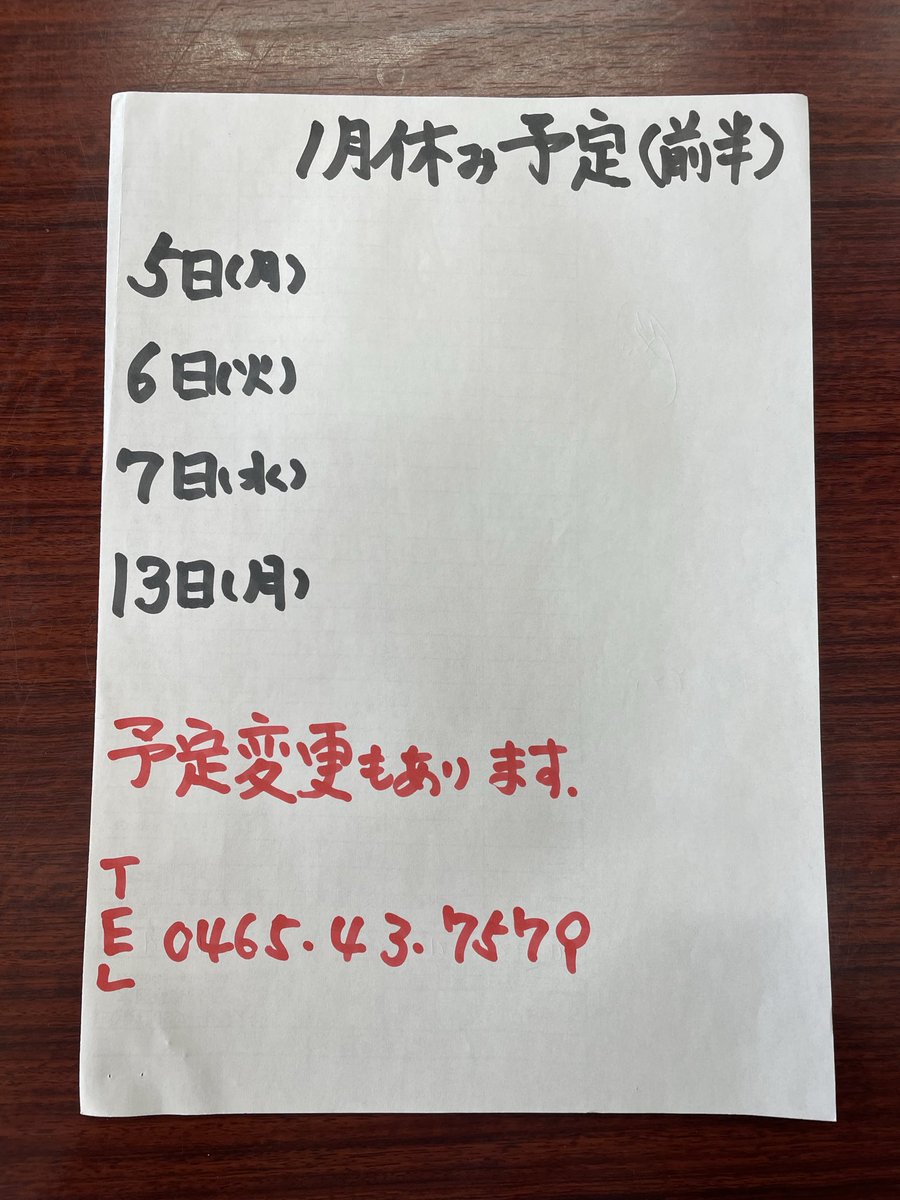 1月休み予定(前半)
5日(月)
6日(火)
7日(水)
13日(月)
予定変更もあります.
TEL 0465.43.7579